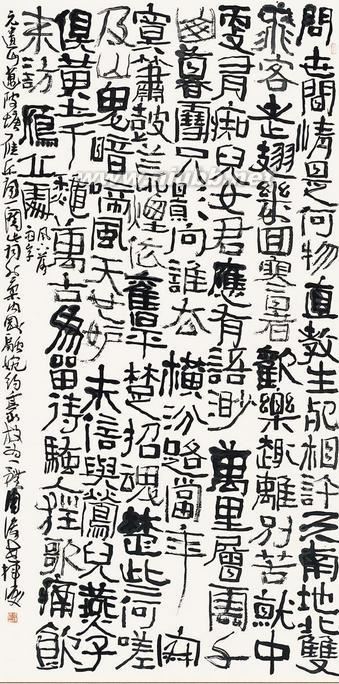 問世間情是何物直教生死相許天南地北雙
飛客老翅幾回寒暑歡樂趣離別苦就中
更有痴兒女君應有語渺萬里層雲千
山暮雪只影向誰去橫汾路當年寂
寞簫鼓荒煙依舊平楚招魂楚些何嗟
及山鬼暗啼風天也妒未信與鶯兒燕子
俱黃土千秋萬古為留待騷人狂歌痛飲
來訪鴈丘處 風下落雨字
元遺山